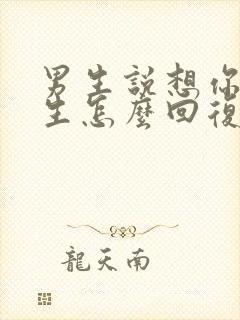 男生說想你
生怎麼回復
龍天南